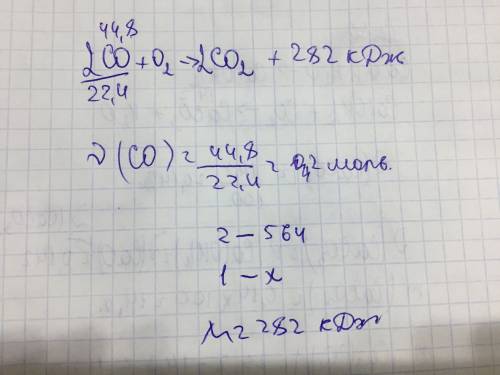 44,8
2CO + O2 → 2CO2 + 282 кДж
22,4
ν (CO) = 44,8 / 22,4 = 0,2 моль.
2 – 564
1 – x
x = 282 кДж